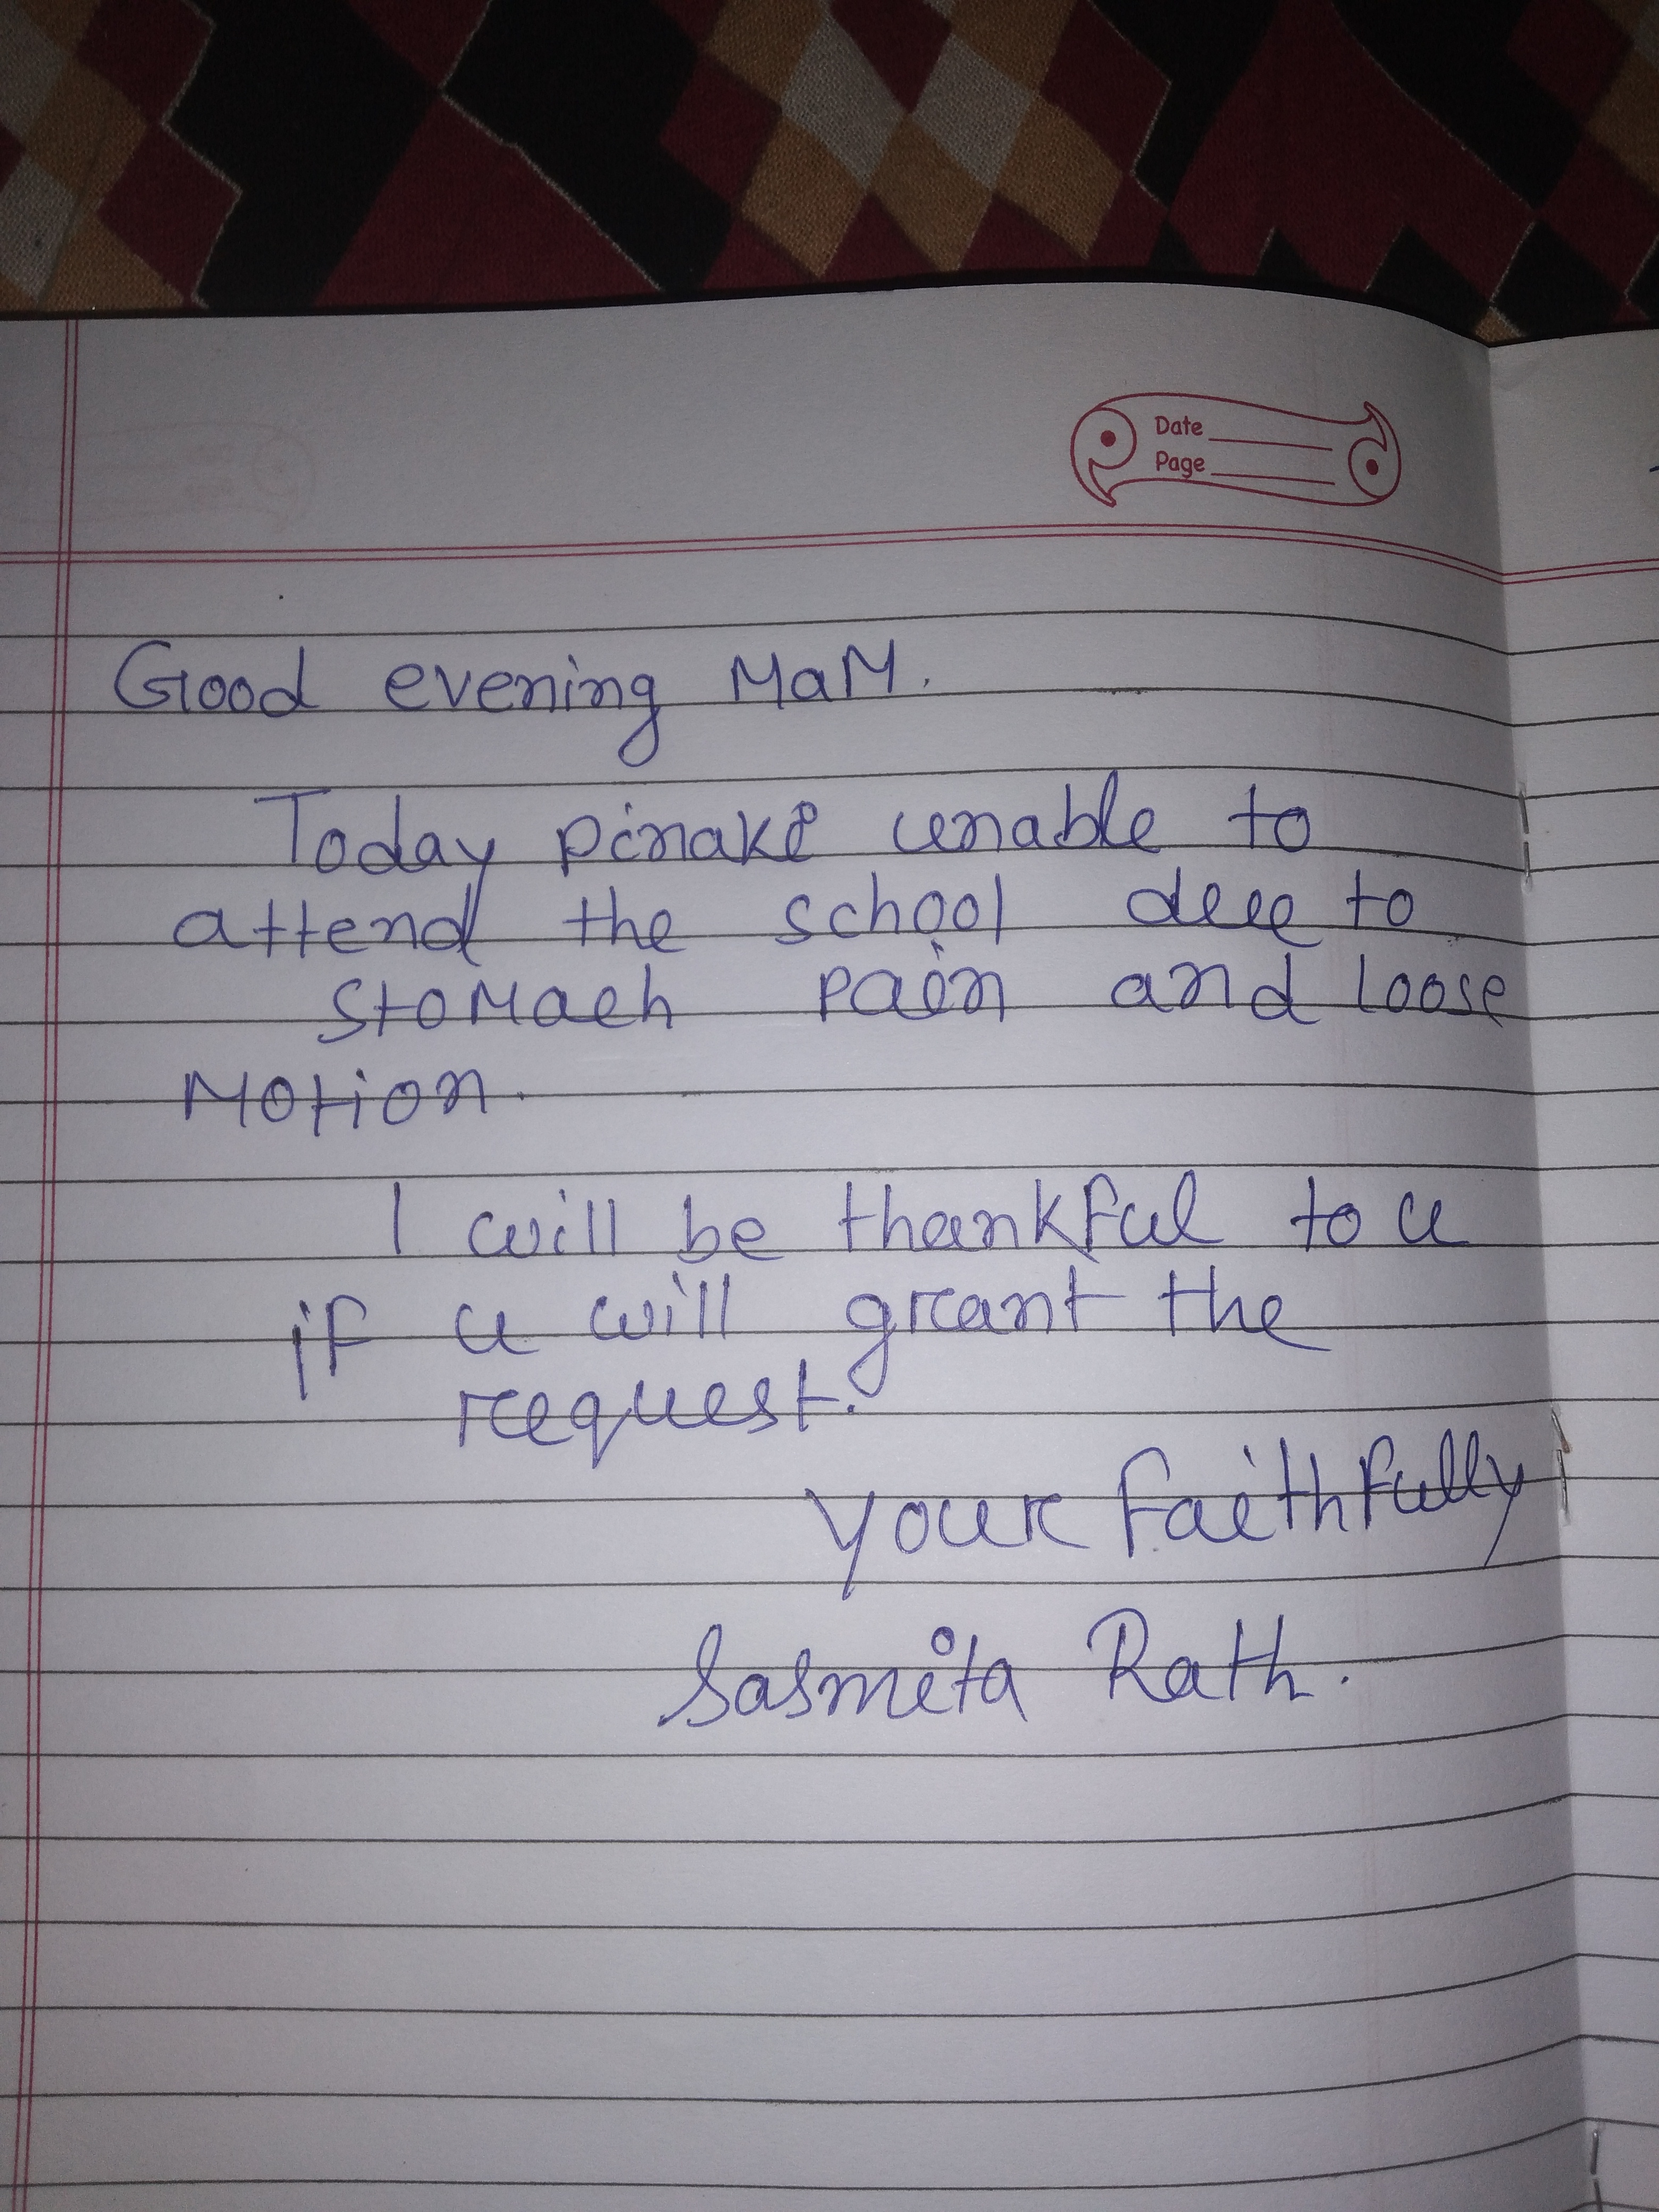 Date
Page
Good evening MaM.
Today pinaki unable to
attend the school due to
stomach pain and loose
Motion.
I will be thankful to u
if u will grant the
request.
your faithfully
Sasmita Rath.